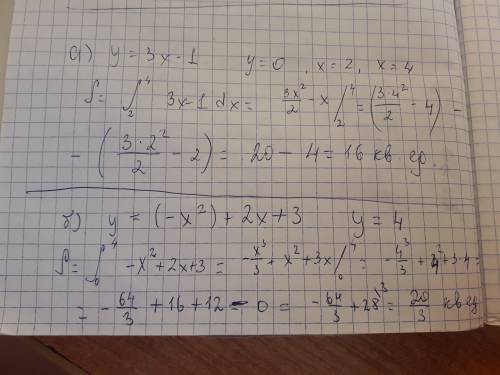 а) y = 3x - 1    y = 0 , x = 2, x = 4
S = ∫₂⁴ 3x-1 dx = 3x²/2 - x |₂⁴ = (3·4²/2 - 4) -
- (3·2²/2 - 2) = 20 - 4 = 16 кв ер.
б) y = (-x²) + 2x + 3    y = 4
S = ∫₀⁴ -x² + 2x + 3 = -x³/3 + x² + 3x |₀⁴ = -4³/3 + 4² + 3·4 =
= -64/3 + 16 + 12 - 0 = -64/3 + 28³ = 20/3 кв ед